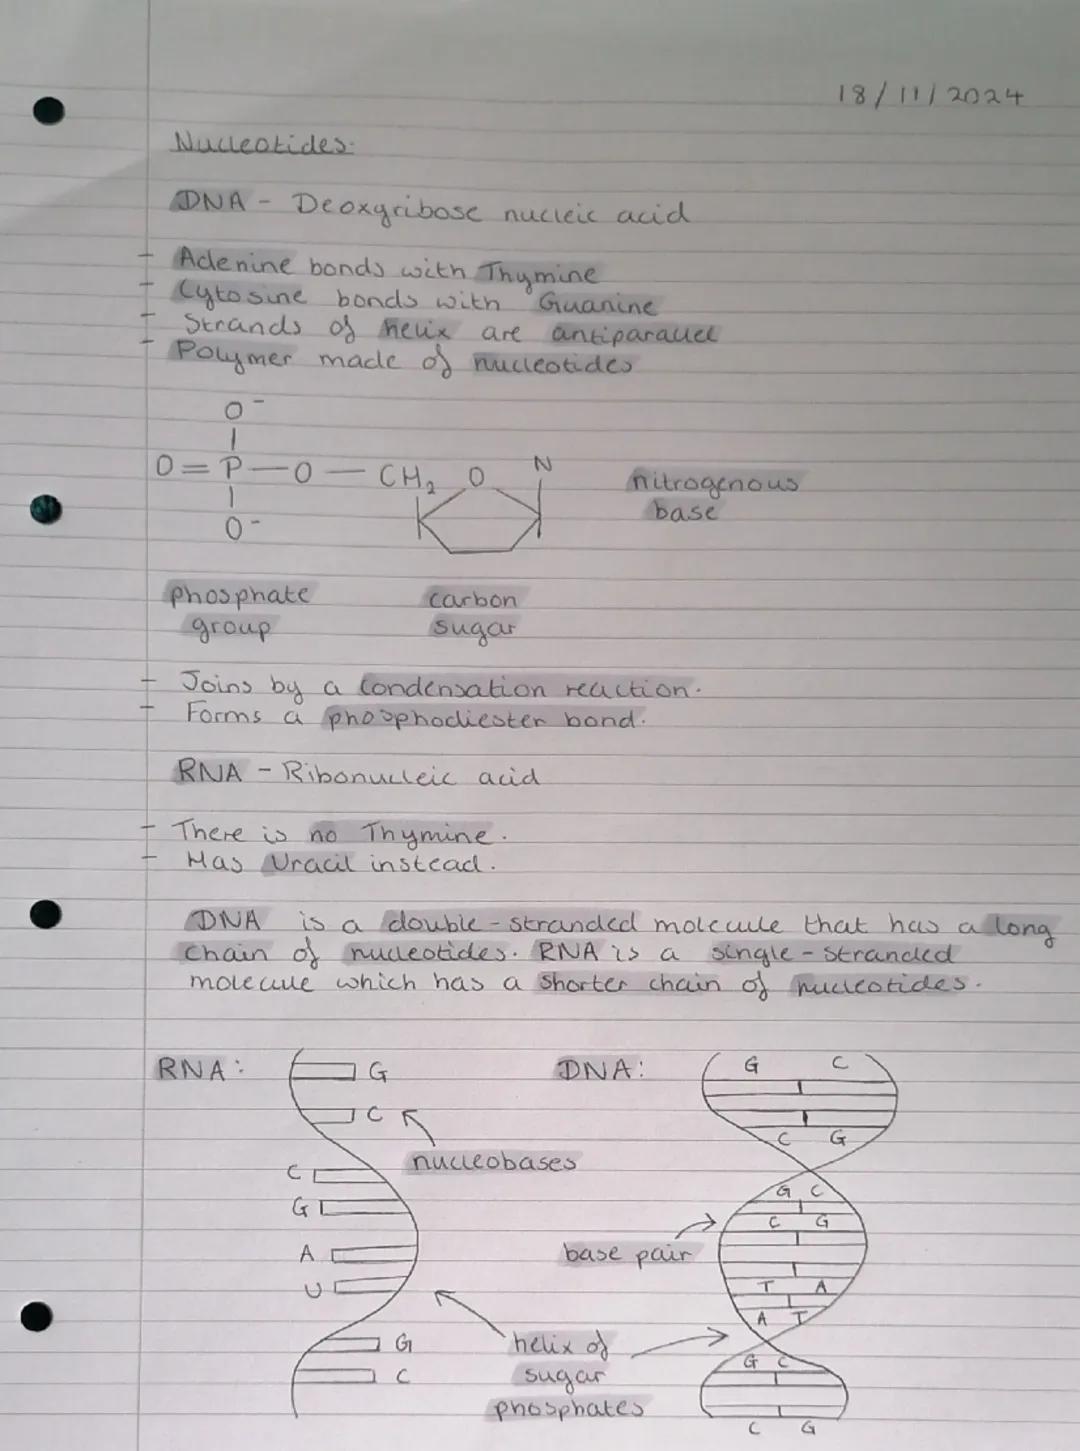 18/11/2024
Nucleotides.
DNA - Deoxyribose nucleic acid
- Adenine bonds with Thymine
- Cytosine bonds with Guanine
- Strands of helix are antiparallel
- Polymer made of nucleotides
O⁻
O=P—O—CH₂ O N
O⁻
nitrogenous
base
phosphate
group
carbon
sugar
- Joins by a condensation reaction.
- Forms a phosphodiester bond.
RNA - Ribonucleic acid
- There is no Thymine.
- Has Uracil instead.
DNA is a double-stranded molecule that has a long
chain of nucleotides. RNA is a single-stranded
molecule which has a shorter chain of nucleotides.
RNA:
G
C
nucleobases
C
G
A
U
G
C
DNA:
G C
C G
G C
C G
base pair
T A
A T
helix of
sugar
phosphates
G C
C G